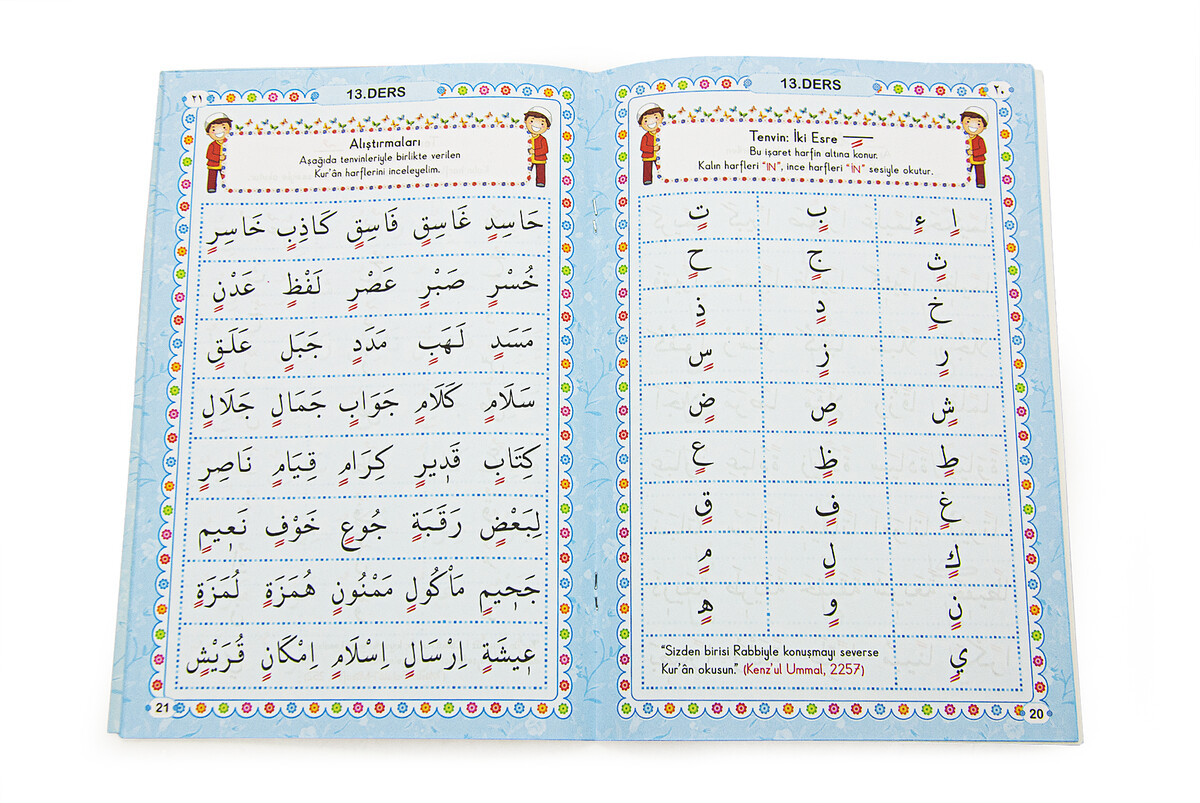 ٢٠
13.DERS
Tenvin: İki Esre
Bu işaret harfin altına konur.
Kalın harfleri “IN”, ince harfleri “İN” sesiyle okutur.
اٍ ءٍ بٍ تٍ
ثٍ جٍ حٍ
خٍ دٍ ذٍ
رٍ زٍ سٍ
شٍ صٍ ضٍ
طٍ ظٍ عٍ
غٍ فٍ قٍ
كٍ لٍ مٍ
نٍ وٍ هٍ
يٍ
“Sizden birisi Rabbiyle konuşmayı severse
Kur’ân okusun.” (Kenz’ul Ummal, 2257)
20
٢١
13.DERS
Alıştırmaları
Aşağıda tenvinleriyle birlikte verilen
Kur’ân harflerini inceleyelim.
حَاسِدٍ غَاسِقٍ فَاسِقٍ كَاذِبٍ خَاسِرٍ
خُسْرٍ صَبْرٍ عَصْرٍ لَفْظٍ عَدْنٍ
مَسَدٍ لَهَبٍ مَدَدٍ جَبَلٍ عَلَقٍ
سَلَامٍ كَلَامٍ جَوَابٍ جَمَالٍ جَلَالٍ
كِتَابٍ قَدٖيرٍ كِرَامٍ قِيَامٍ نَاصِرٍ
لِبَعْضٍ رَقَبَةٍ جُوعٍ خَوْفٍ نَعٖيمٍ
جَحٖيمٍ مَأْكُولٍ مَمْنُونٍ هُمَزَةٍ لُمَزَةٍ
عٖيشَةٍ اِرْسَالٍ اِسْلَامٍ اِمْكَانٍ قُرَيْشٍ
21